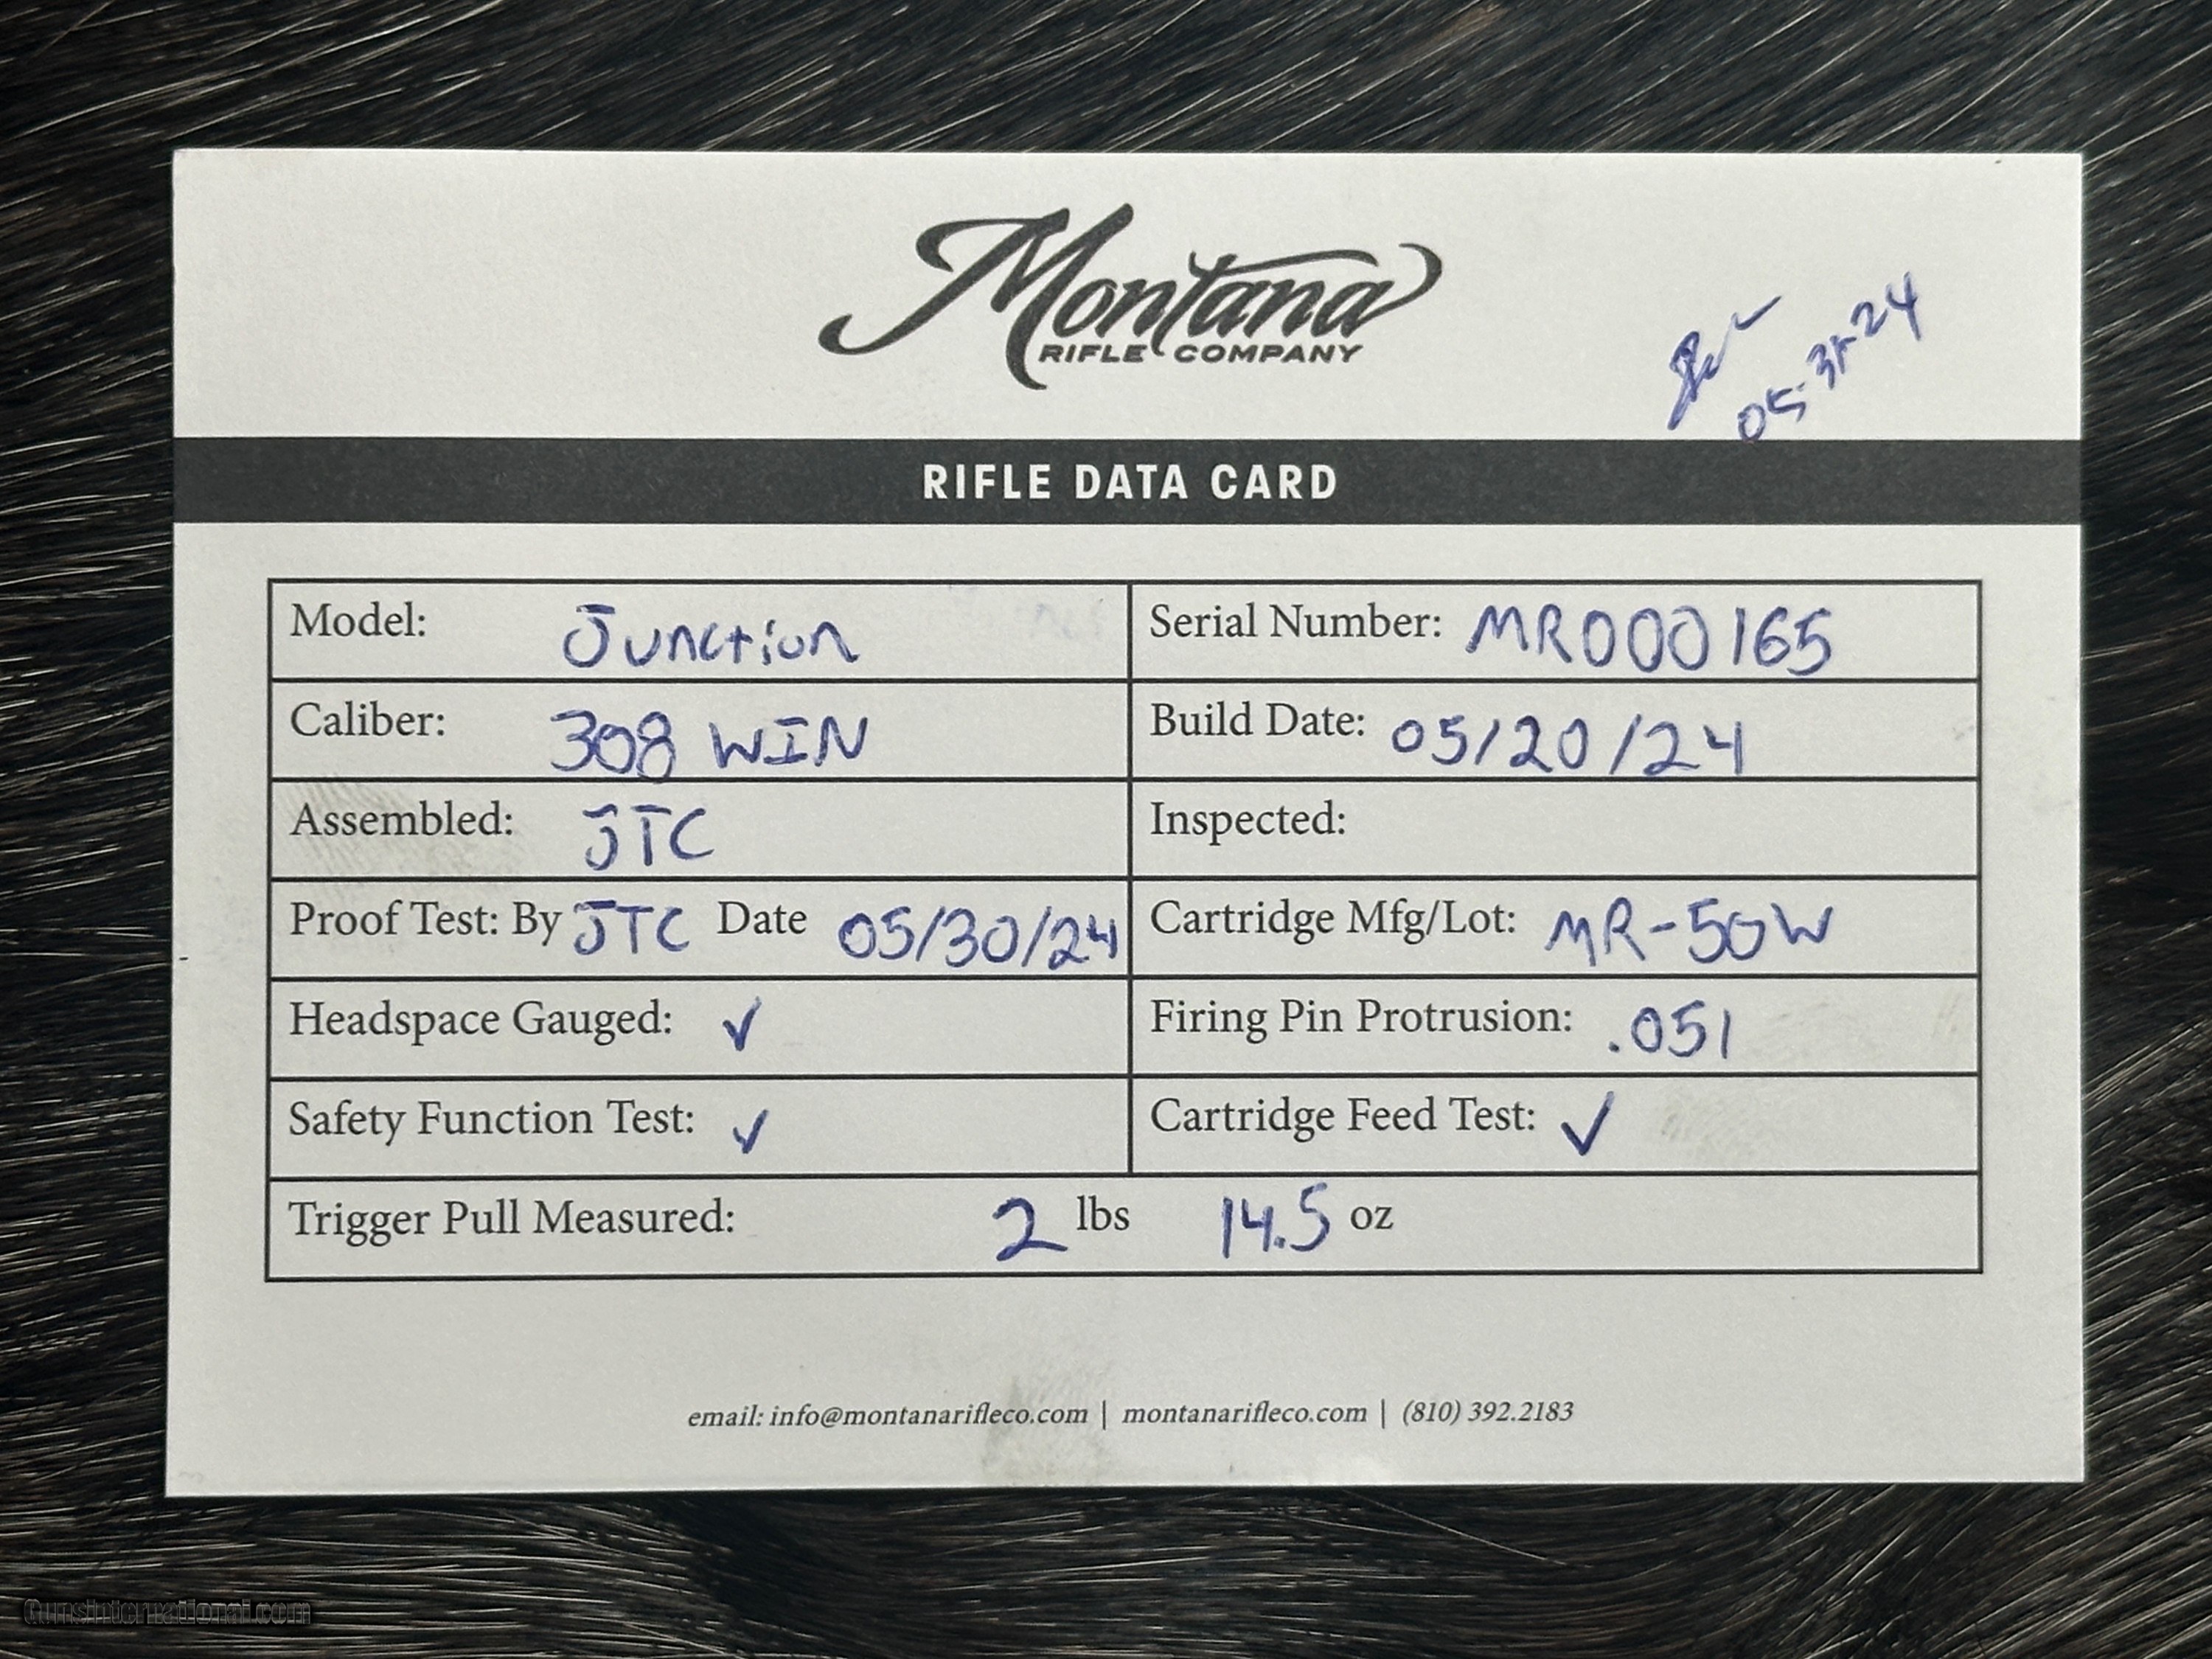 Montana
RIFLE COMPANY
05-31-24
RIFLE DATA CARD
Model: Junction
Serial Number: MR000165
Caliber: 308 WIN
Build Date: 05/20/24
Assembled: JTC
Inspected:
Proof Test: By JTC Date 05/30/24
Cartridge Mfg/Lot: MR-50W
Headspace Gauged: ✓
Firing Pin Protrusion: .051
Safety Function Test: ✓
Cartridge Feed Test: ✓
Trigger Pull Measured: 2 lbs 14.5 oz
email: info@montanarifleco.com | montanarifleco.com | (810) 392.2183
Gunsinternational.com